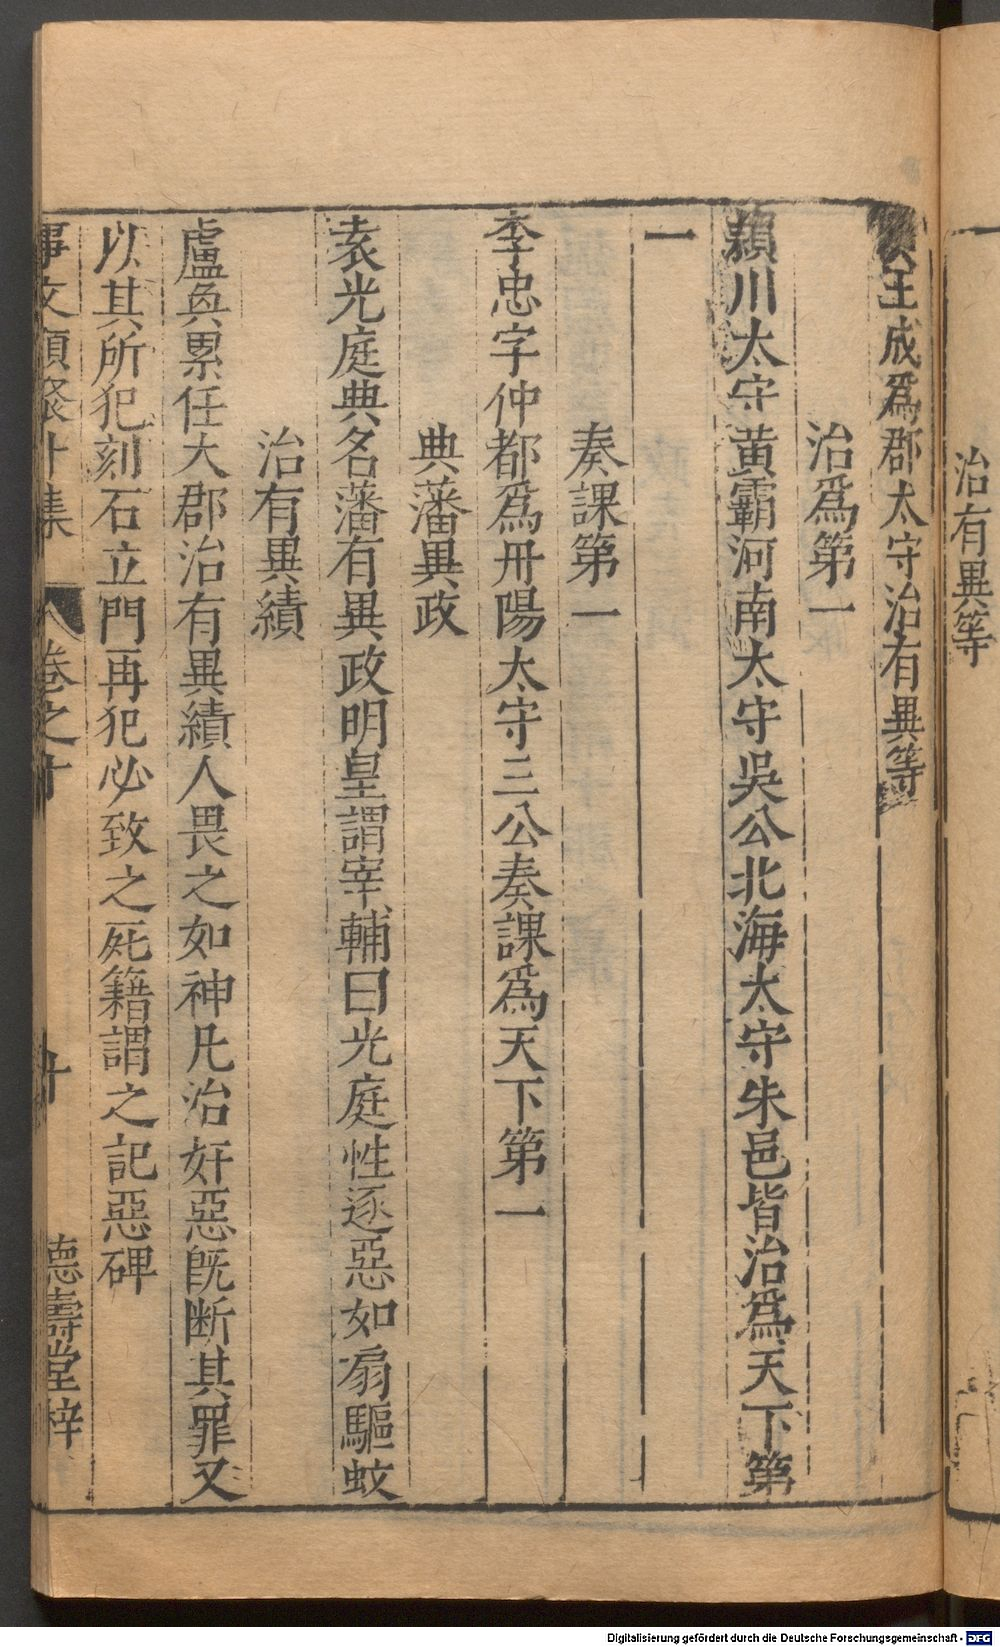 治有異等
王成爲郡太守治有異等
治爲第一
潁川太守黃霸河南太守吳公北海太守朱邑皆治爲天下第
一
奏課第一
李忠字仲都爲丹陽太守三公奏課爲天下第一
典藩異政
袁光庭典名藩有異政明皇謂宰輔曰光庭性逐惡如扇驅蚊
治有異績
盧奐累任大郡治有異績人畏之如神凡治奸惡既断其罪又
以其所犯刻石立門再犯必致之死籍謂之記惡碑
事文類聚廾集
卷之十
十
德壽堂梓
Digitalisierung gefördert durch die Deutsche Forschungsgemeinschaft - DFG